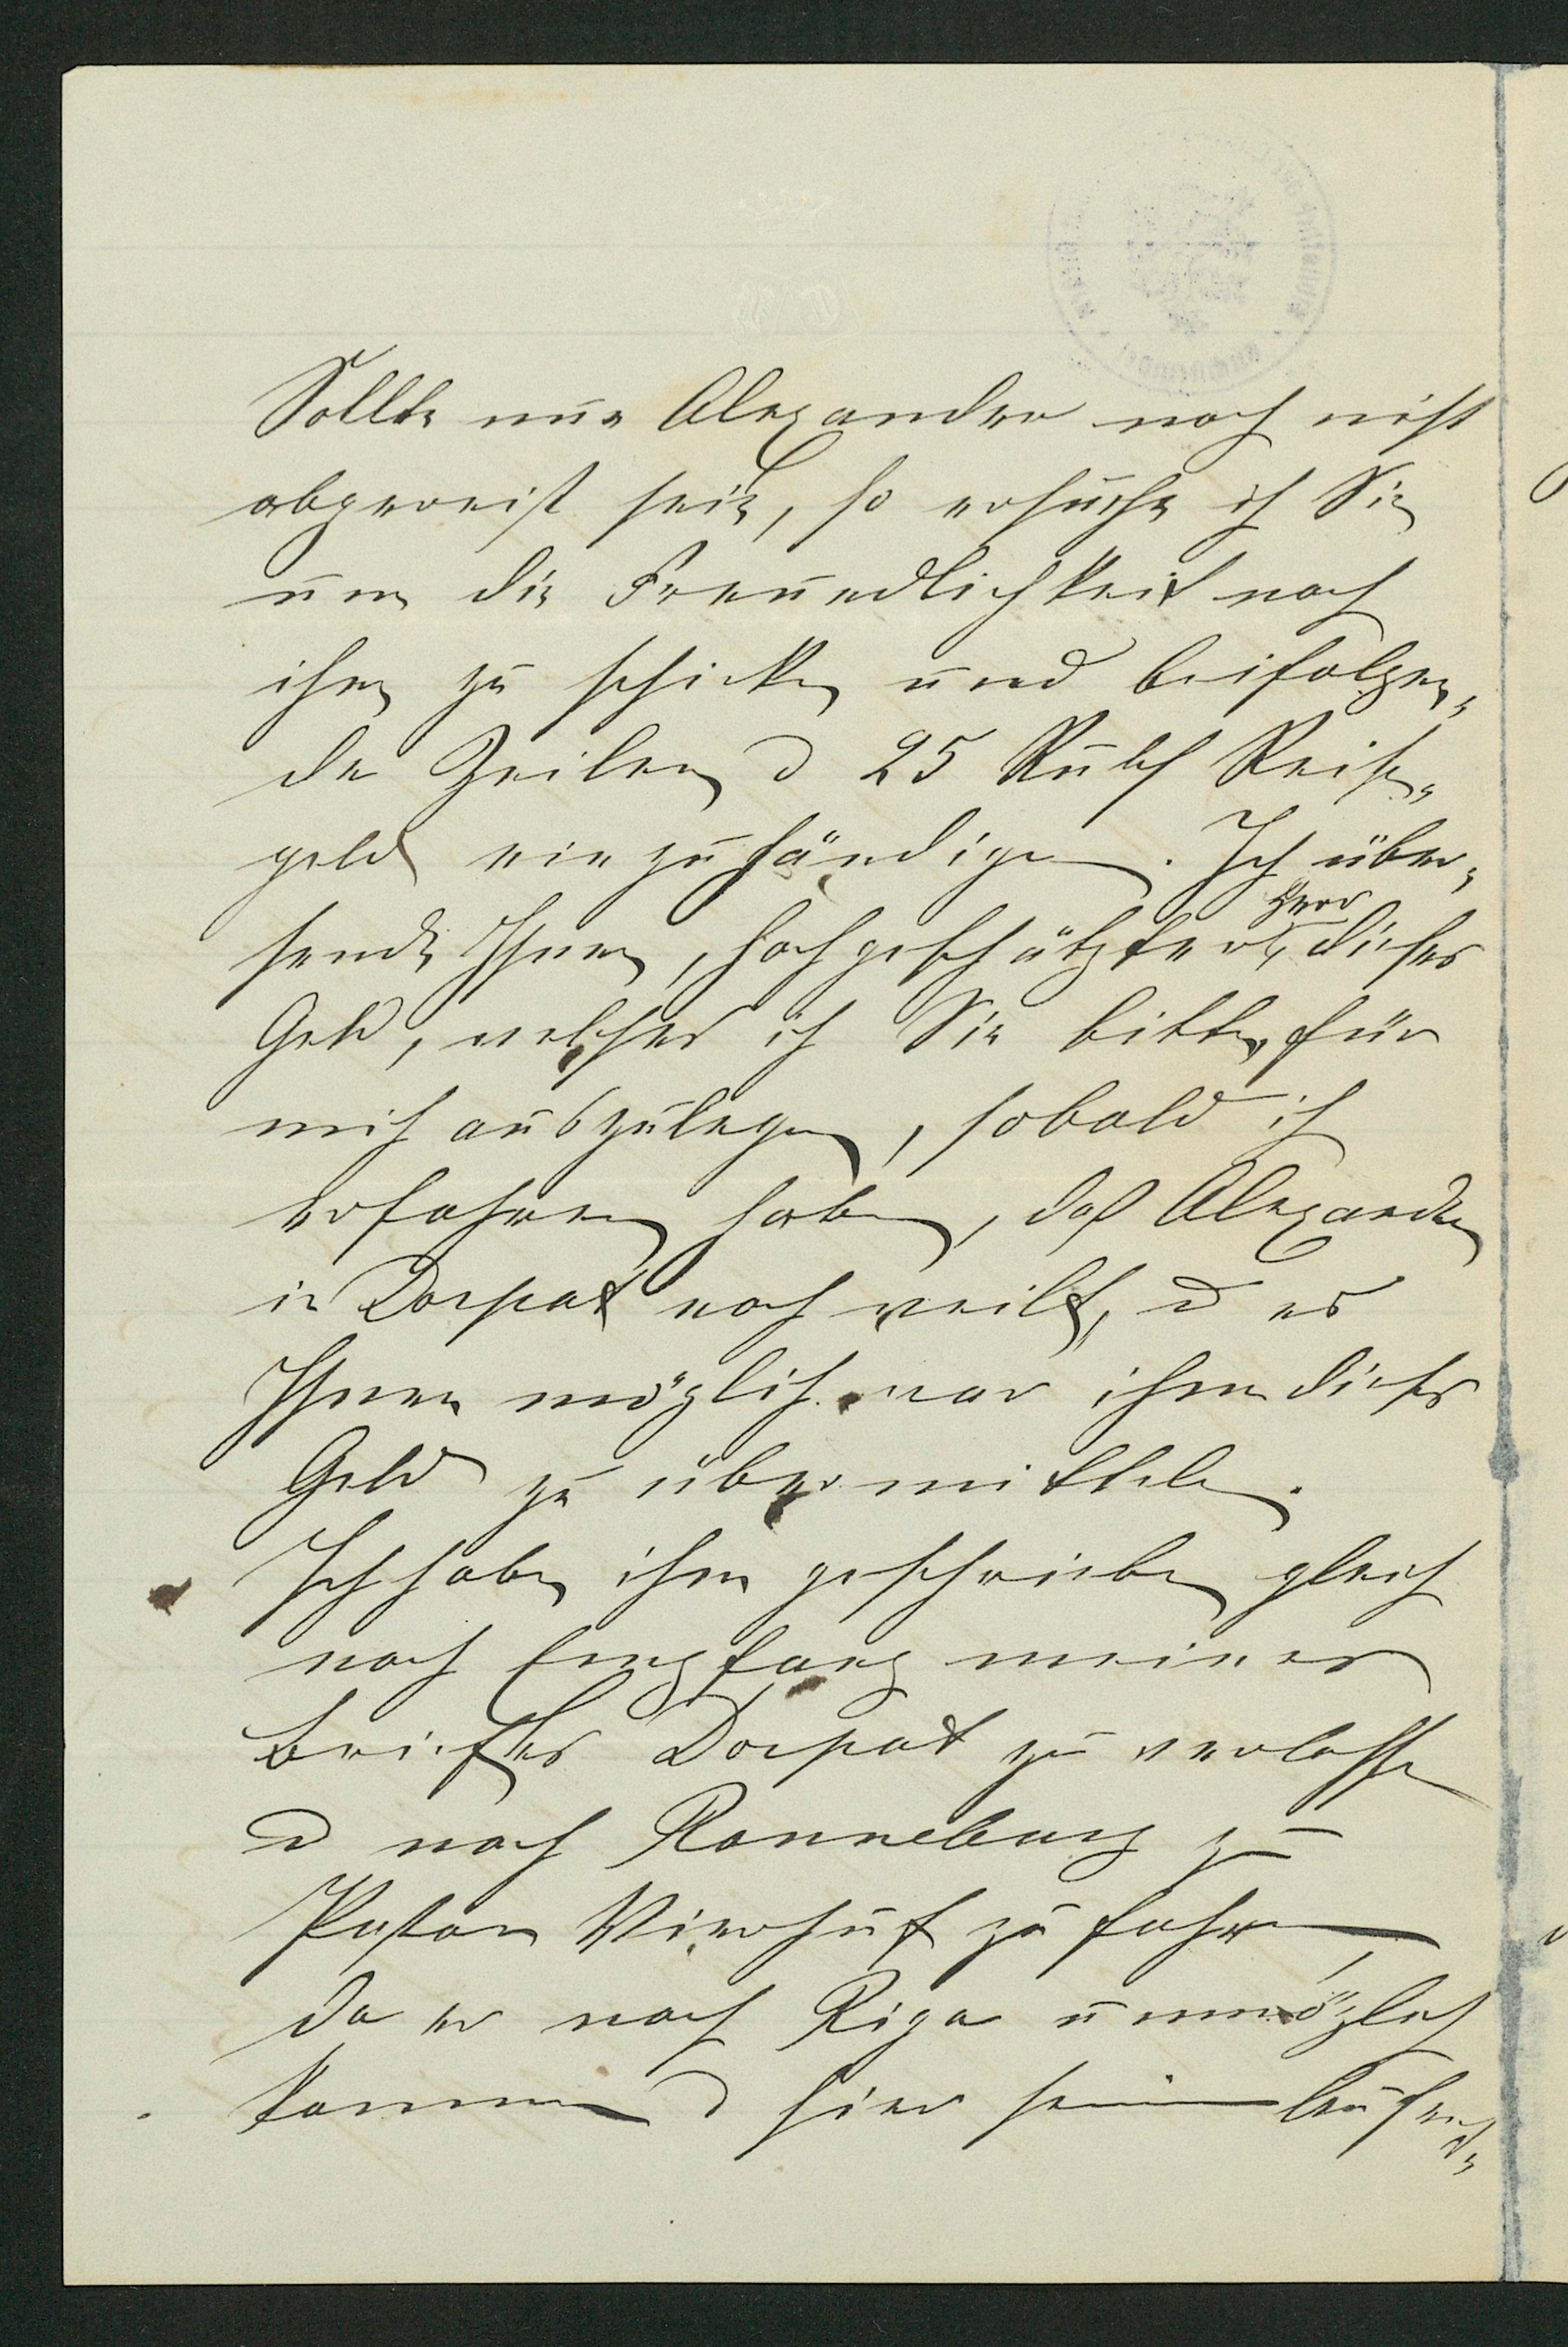 Sollte nun Alexander noch nicht
abgereist sein, so ersuche ich Sie
um die Freundlichkeit nach
ihm zu schicken und beifolgen„
de Zeilen u 25 Rubel Reise„
geld einzuhändigen. Ich über„
sende Ihnen, hochgeschätzter Herr, dieses
Geld, welches ich Sie bitte, für
mich auszulegen, sobald ich
erfahren habe, daß Alexander
in Dorpat noch weilt, u es
Ihnen möglich war ihm dieses
Geld zu übermitteln.
Ich habe ihm geschrieben gleich
nach Empfang meines
Briefes Dorpat zu verlassen
u nach Ronneburg zu
Pastor Vierhuf zu fahren,
da er nach Riga unmöglich
kommen u hier sein